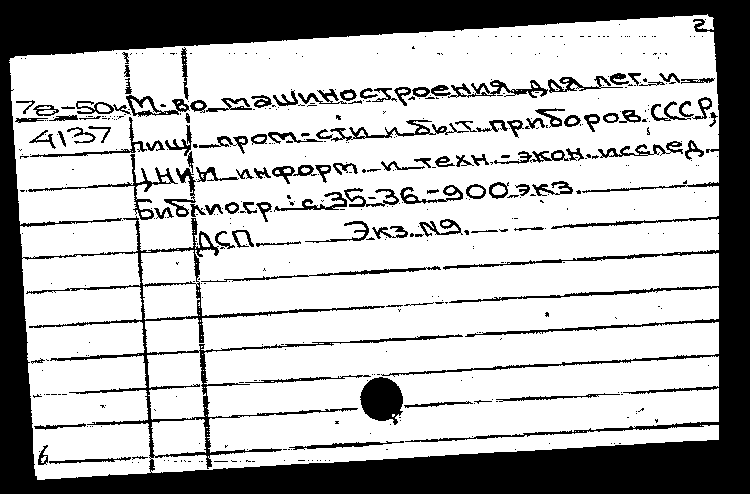 2.
78-50к М-во машиностроения для лег. и
4137 пищ. пром-сти и быт. приборов СССР,
ЦНИИ информ. и техн.-экон. исслед.
Библиогр.: с. 35-36. - 900 экз.
ДСП. Экз. №9.
6